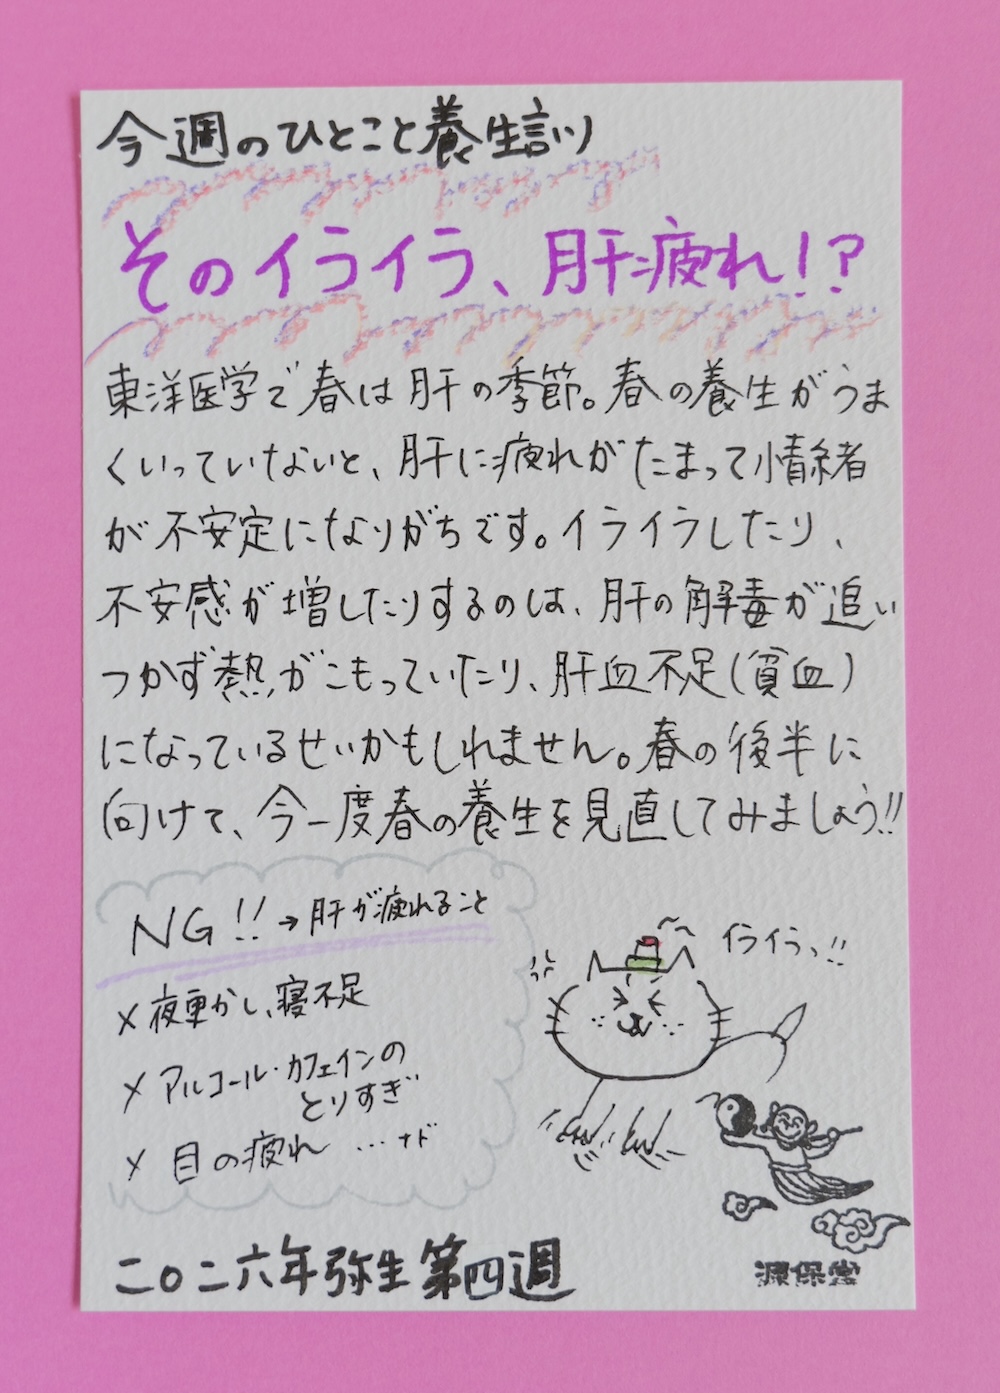 今週のひとこと養生訓
そのイライラ、肝疲れ!?
東洋医学で春は肝の季節。春の養生がうま
くいっていないと、肝に疲れがたまって情緒
が不安定になりがちです。イライラしたり、
不安感が増したりするのは、肝の解毒が追い
つかず熱がこもっていたり、肝血不足(貧血)
になっているせいかもしれません。春の後半に
向けて、今一度春の養生を見直してみましょう!!
NG!!→肝が疲れること
×夜更かし、寝不足
×アルコール・カフェインの
とりすぎ
×目の疲れ …ナド
イライラっ!!
二〇二六年弥生第四週
源保堂